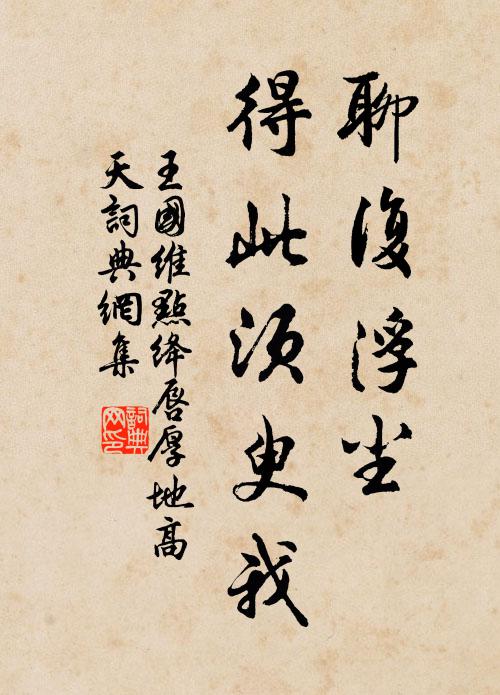 聊復浮尘
得此須臾我
王國維點絳唇厚地高
天詞典網集
詞典网印